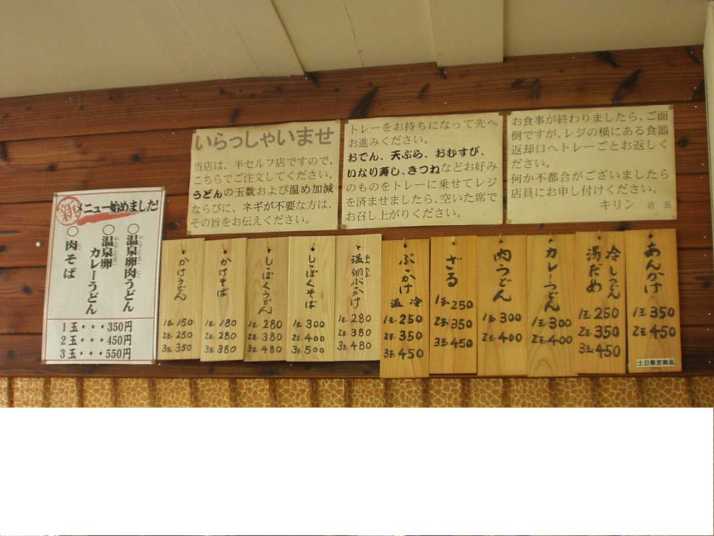 いらっしゃいませ
当店は、半セルフ店ですので、
こちらでご注文してください。
うどんの玉数および温め加減
ならびに、ネギが不要な方は、
その旨をお伝えください。
トレーをお持ちになって先へ
お進みください。
おでん、天ぷら、おむすび、
いなり寿し、きつねなどお好み
のものをトレーに乗せてレジ
を済ませましたら、空いた席で
お召し上がりください。
お食事が終わりましたら、ご面
倒ですが、レジの横にある食器
返却口へトレーごとお返しく
ださい。
何か不都合がございましたら
店員にお申し付けください。
キリン 店長
メニュー始めました!
○温泉卵肉うどん
○温泉卵カレーうどん
○肉そば
1玉・・・350円
2玉・・・450円
3玉・・・550円
かけうどん
1玉 150
2玉 250
3玉 350
かけそば
1玉 180
2玉 280
3玉 380
しっぽくうどん
1玉 280
2玉 380
3玉 480
しっぽくそば
1玉 300
2玉 400
3玉 500
温卵ぶっかけ
1玉 280
2玉 380
3玉 480
ぶっかけ
温 冷
1玉 250
2玉 350
3玉 450
ざる
1玉 250
2玉 350
3玉 450
肉うどん
1玉 300
2玉 400
カレーうどん
1玉 300
2玉 400
冷しうどん
湯だめ
1玉 250
2玉 350
3玉 450
あんかけ
1玉 350
2玉 450
土日限定商品